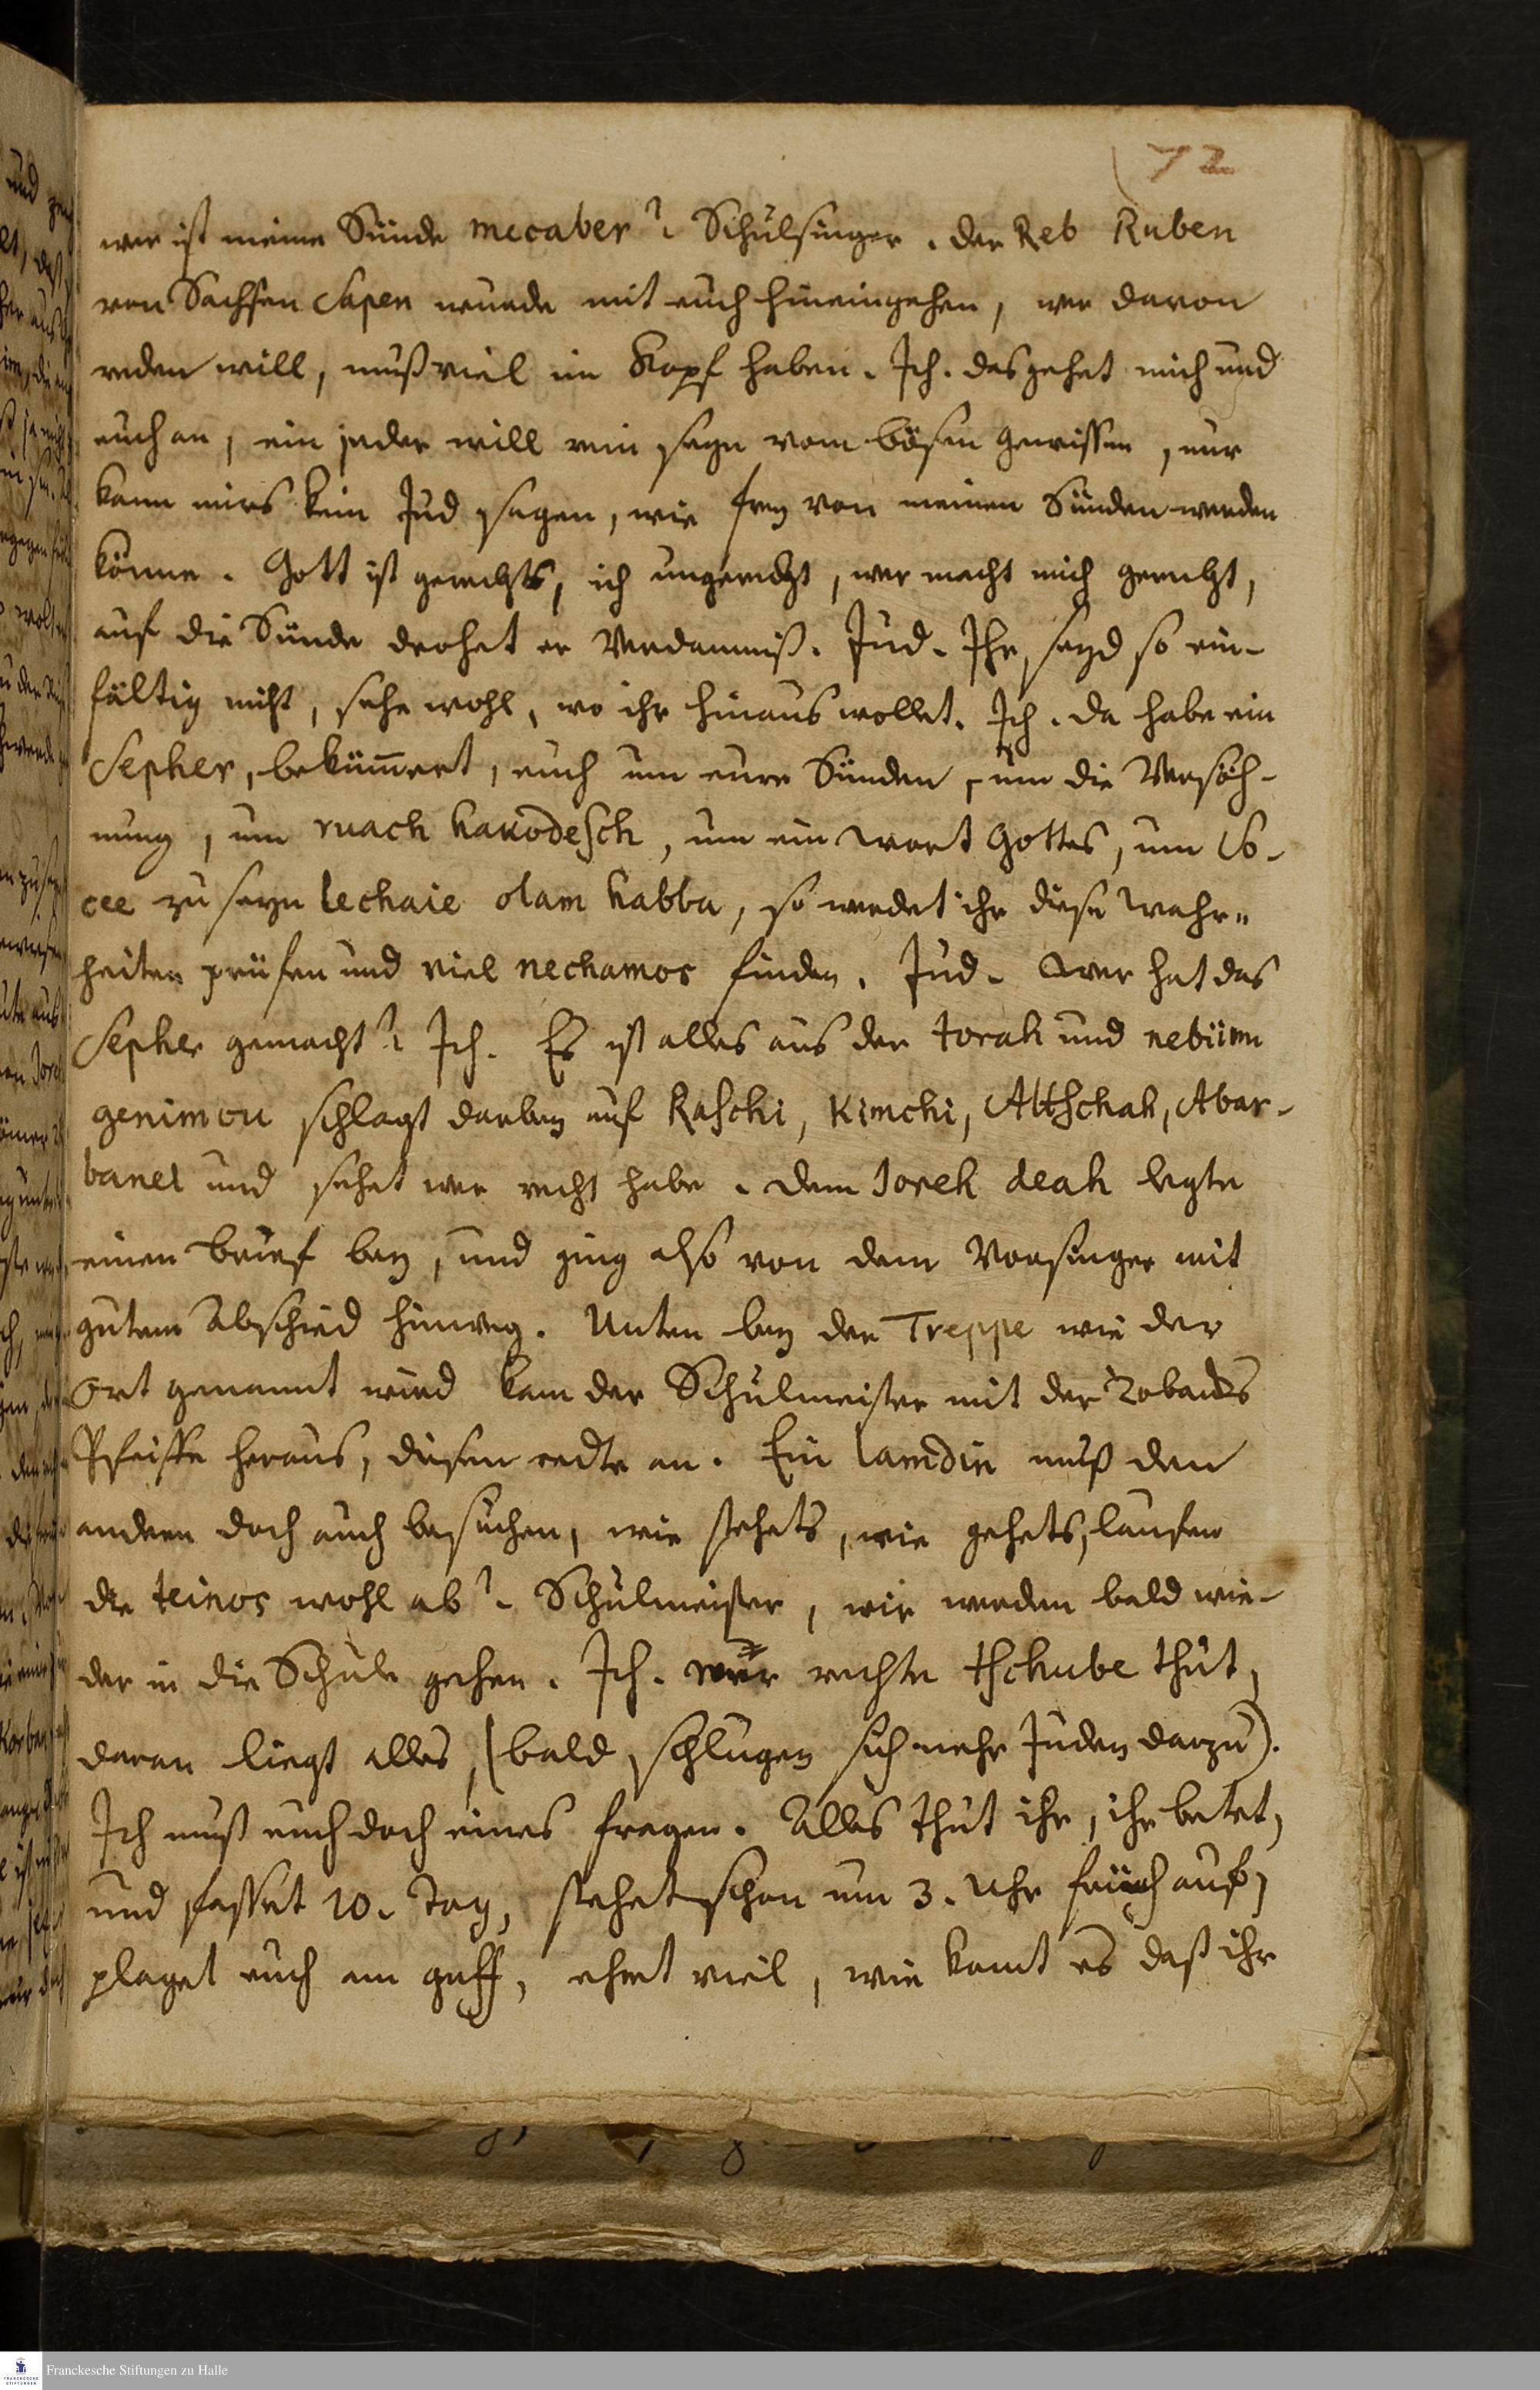 72
wer ist meine Sünde mecaber? Schulsinger. der Reb Ruben
von Sachsen Capen wurde mit euch hineingehen, wer davon
reden will, muß viel im Kopf haben. Ich. das gehet mich und
euch an, ein jeder will rein seyn vom bösen gewissen, nur
kann mirs kein Jud sagen, wie frey von meinen Sünden werden
könne. Gott ist gerecht, ich ungerecht, wer macht mich gerecht,
auf die Sünde drohet er Verdamniß. Jud. Ihr seyd so ein-
fältig nicht, sehe wohl, wo ihr hinaus wollet. Ich. da habe ein
Sepher, bekümmert, euch um eure Sünden, um die Versöh-
nung, um ruach hakodesch, um ein wort Gottes, um so-
cee zu seyn lechaie olam habba, so werdet ihr diese wahr-
heiten prüfen und viel nechamos finden. Jud. Wer hat das
Sepher gemacht? Ich. Es ist alles aus der torah und nebiim
genimon schlagt darbey auf Raschi, Kimchi, Altschah, Abar-
banel und sehet wer recht habe. dem Joreh deah legte
einen brief bey, und ging also von dem Vorsinger mit
gutem Abschied hinweg. Unten bey der Treppe wie der
Ort genannt wird kam der Schulmeister mit der Tobacks
Pfeiffe heraus, diesen redte an. Ein lamdin muß den
andern doch auch besuchen, wie stehets, wie gehets, laufen
die teinos wohl ab? Schulmeister, wir werden bald wie-
der in die Schule gehen. Ich. wer rechte tschube thut,
daran liegt alles, (bald schlugen sich mehr Juden darzu).
Ich muß euch doch eines fragen. Alles thut ihr, ihr betet,
und fasset 10. Tag, stehet schon um 3. Uhr früh auf,
plaget euch am guff, ehret viel, wie komt es daß ihr
Franckesche Stiftungen zu Halle